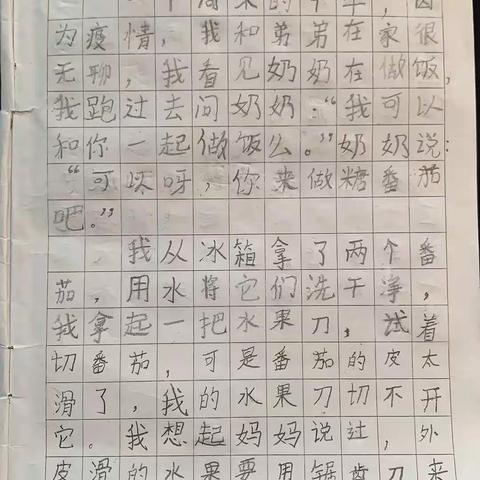 一个周末的下午，因
为疫情，我和弟弟在家很
无聊，我看见奶奶在做饭，
我跑过去问奶奶：“我可以
和你一起做饭么。”奶奶说：
“可以呀，你来做糖番茄
吧。”
我从冰箱拿了两个番
茄，用水将它们洗干净，
我拿起一把水果刀，试着
切番茄，可是番茄的皮太
滑了，我的水果刀切不开
它。我想起妈妈说过，外
皮滑的水果要用锯齿刀来